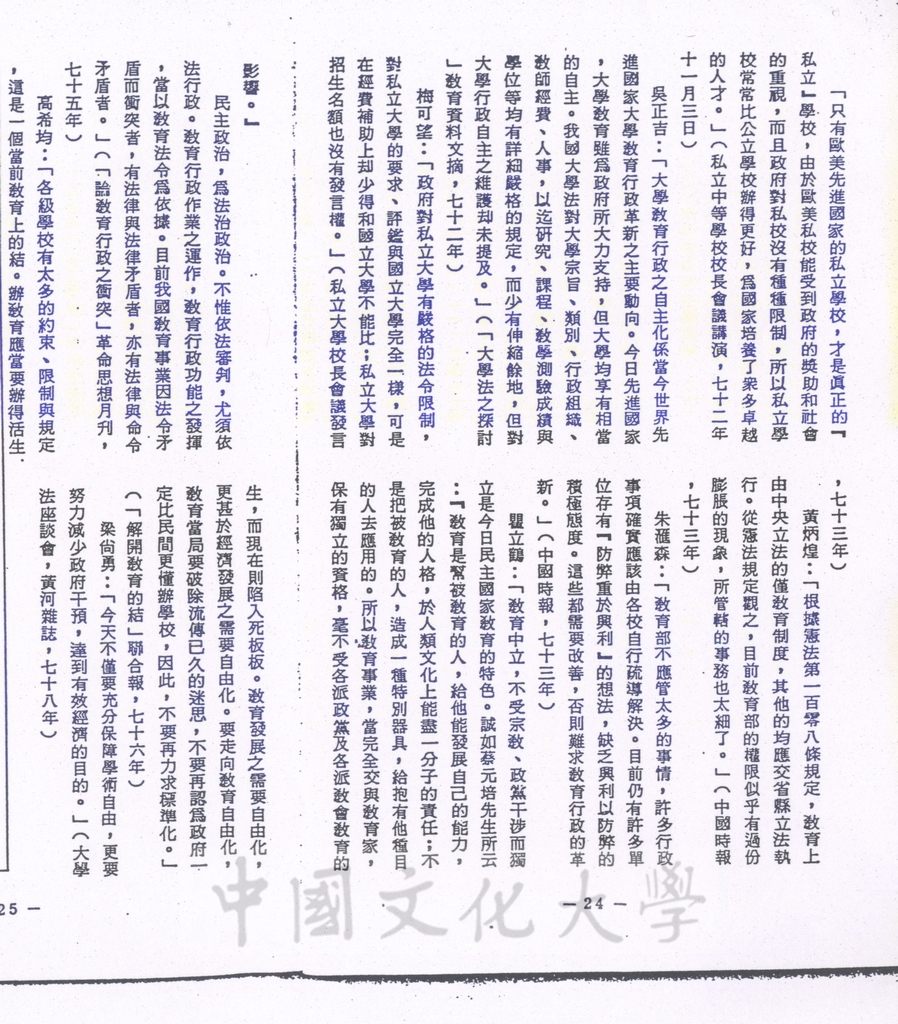 「只有歐美先進國家的私立學校，才是真正的『
私立』學校，由於歐美私校能受到政府的獎助和社會
的重視，而且政府對私校沒有種種限制，所以私立學
校常常比公立學校辦得更好，爲國家培養了衆多卓越
的人才。」（私立中等學校校長會議講演，七十二年
十一月三日）
吳正吉：「大學教育行政之自主化係當今世界先
進國家大學教育行政革新之主要動向。今日先進國家
，大學教育雖爲政府所大力支持，但大學均享有相當
的自主。我國大學法對大學宗旨、類別、行政組織、
教師經費、人事，以迄研究、課程、教學測驗成績與
學位等均有詳細嚴格的規定，而少有伸縮餘地，但對
大學行政自主之維護却未提及。」（「大學法之探討
」教育資料文摘，七十二年）
梅可望：「政府對私立大學有嚴格的法令限制，
對私立大學的要求、評鑑與國立大學完全一樣，可是
在經費補助上却少得和國立大學不能比；私立大學對
招生名額也沒有發言權。」（私立大學校長會議發言
，七十三年）
黃炳煌：「根據憲法第一百零八條規定，教育上
由中央立法的僅教育制度，其他的均應交省縣立法執
行。從憲法規定觀之，目前教育部的權限似乎有過份
膨脹的現象，所管轄的事務也太細了。」（中國時報
，七十三年）
朱滙森：「教育部不應管太多的事情，許多行政
事項確實應該由各校自行疏導解決。目前仍有許多單
位存有『防弊重於興利』的想法，缺乏興利以防弊的
積極態度。這些都需要改善，否則難求教育行政的革
新。」（中國時報，七十三年）
瞿立鶴：「教育中立，不受宗教、政黨干涉而獨
立是今日民主國家教育的特色。誠如蔡元培先生所云
：『教育是幫被教育的人，給他能發展自己的能力，
完成他的人格，於人類文化上能盡一分子的責任；不
是把被教育的人，造成一種特別器具，給抱有他種目
的人去應用的。所以教育事業，當完全交與教育家，
保有獨立的資格，毫不受各派政黨及各派教會教育的
－24－
影響。』
民主政治，爲法治政治。不惟依法審判，尤須依
法行政。教育行政作業之運作，教育行政功能之發揮
，當以教育法令爲依據。目前我國教育事業因法令矛
盾而衝突者，有法律與法律矛盾者，亦有法律與命令
矛盾者。」（「論教育行政之衝突」革命思想月刋，
七十五年）
高希均：「各級學校有太多的約束、限制與規定
，這是一個當前教育上的結。辦教育應當要辦得活生
生，而現在則陷入死板板。教育發展之需要自由化，
更甚於經濟發展之需要自由化。要走向教育自由化，
教育當局要破除流傳已久的迷思，不要再認爲政府一
定比民間更懂辦學校，因此，不要再力求標準化。」
（「解開教育的結」聯合報，七十六年）
梁尚勇：「今天不僅要充分保障學術自由，更要
努力減少政府干預，達到有效經濟的目的。」（大學
法座談會，黃河雜誌，七十八年）
25－
中國文化大學